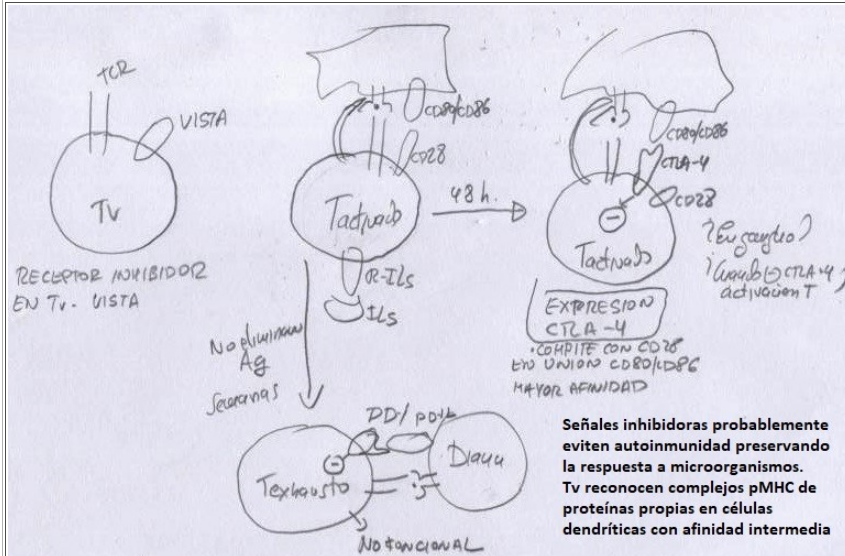 TCR
VISTA
Tv
RECEPTOR INHIBIDOR
EN Tv. VISTA
CD80/CD86
CD28
Tactivado
R-ILs
ILs
48 h.
CD80/CD86
CTLA-4
CD28
Tactivado
(En ganglio)
CTLA-4
activación T
EXPRESION
CTLA-4
·COMPITE CON CD28
EN UNION CD80/CD86
MAYOR AFINIDAD
No eliminan
Ag
Semanas
Texhausto
Diana
NO FUNCIONAL
Señales inhibidoras probablemente
eviten autoinmunidad preservando
la respuesta a microorganismos.
Tv reconocen complejos pMHC de
proteínas propias en células
dendríticas con afinidad intermedia